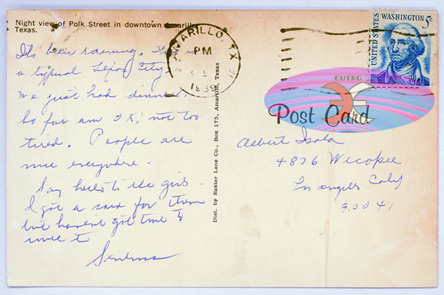 Night view of Polk Street in downtown Amarillo,
Texas.
AMARILLO, TX
PM
UNITED STATES
WASHINGTON 5c
Post Card
Dist. by Baxter Lane Co., Box 175, Amarillo, Texas
It's been raining. This is
a typical City
We just had dinner
So far am O.K., not too
tired. People are
nice everywhere.
Say hello to the girls.
I got a card for them
but haven't got time to
write it
Albert
4876 Wicopee
Los Angeles Calif
90041